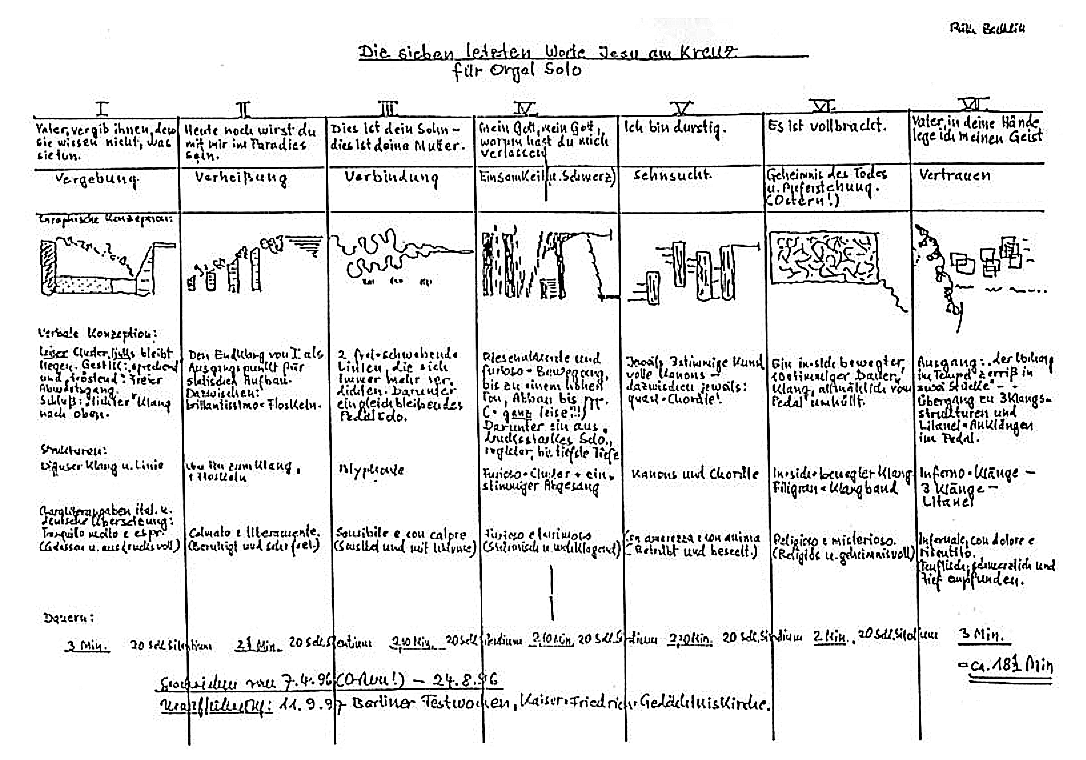 Die sieben letzten Worte Jesu am Kreuz
für Orgel Solo
I II III IV V VI VII
Vater, vergib ihnen, denn
sie wissen nicht, was
sie tun.
Heute noch wirst du
mit mir im Paradies
sein.
Dies ist dein Sohn –
dies ist deine Mutter.
Mein Gott, mein Gott,
warum hast du mich
verlassen
Ich bin durstig.
Es ist vollbracht.
Vater, in deine Hände
lege ich meinen Geist
Vergebung
Verheißung
Verbindung
Einsamkeit (u. Schmerz)
Sehnsucht.
Geheimnis des Todes
u. Auferstehung.
(Ostern!)
Vertrauen
Graphische Konzeption:
Verbale Konzeption:
Leiser Cluster, bleibt
liegen. Gestik: sprechend
und tröstend: freier
Schluß: "lichter" Klang
nach oben.
Den Endklang von I als
Ausgangspunkt für
statischen Aufbau.
Dazwischen:
brillantissimo-Floskeln.
2 frei-schwebende
Linien, die sich
immer mehr ver-
dichten. Darunter
ein gleichbleibendes
Pedalsolo.
und
furioso-Bewegung,
bis zu einem hohen
Ton, Abbau bis pp.
C-ganz leise!!!)
Darunter ein aus-
drucksstarkes Solo,
bis tiefste Tiefe
Jeweils 3stimmige Kunst
volle Kanons –
dazwischen jeweils:
quasi-Choräle!
Ein inside bewegter,
Klang, allmählich vom
Pedal umhüllt.
Ausgang: der Vorhang
im Tempel zerriß in
zwei Stücke - -
Übergang zu 3 Klangs-
strukturen und
Litanei-Anklängen
im Pedal.
Strukturen:
Diffuser Klang u. Linie
Von Ton zum Klang,
+ Floskeln
Polyphonie
Furioso-Cluster + ein-
stimmiger Abgesang
Kanons und Choräle
Inside-bewegter Klang
Filigran-Klangband
Inferno-Klänge –
3 Klänge –
Litanei
Charakterangaben ital. u.
deutsche Übersetzung:
Tranquillo molto e espr.
(Gelassen u. ausdrucksvoll)
Calmato e liberamente.
(Beruhigt und sehr frei.)
Sensibile e con calore
(Sensibel und mit Wärme)
Furioso e lacrimoso
(Stürmisch u. wehklagend)
Con amarezza e con anima
(Betrübt und beseelt.)
Religioso e misterioso.
(Religiös u. geheimnisvoll)
Infernale, con dolore e
Teuflisch, schmerzlich und
tief empfunden.
Dauern:
3 Min. 20 Sek. Silentium 2½ Min. 20 Sek. Silentium 2,30 Min. 20 Sek. Silentium 2,10 Min. 20 Sek. Silentium 2,20 Min. 20 Sek. Silentium 2 Min. 20 Sek. Silentium 3 Min.
= ca. 18½ Min
Geschrieben vom 7.4.96 (Ostern!) – 24.8.96
Uraufführung: 11.9.97 Berliner Festwochen, Kaiser-Friedrich-Gedächtniskirche.